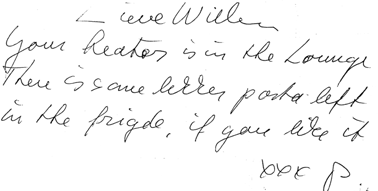 Lieve Willem
Your heater is in the Lounge
There is some pasta left
in the frigde, if you like it
xxx P.